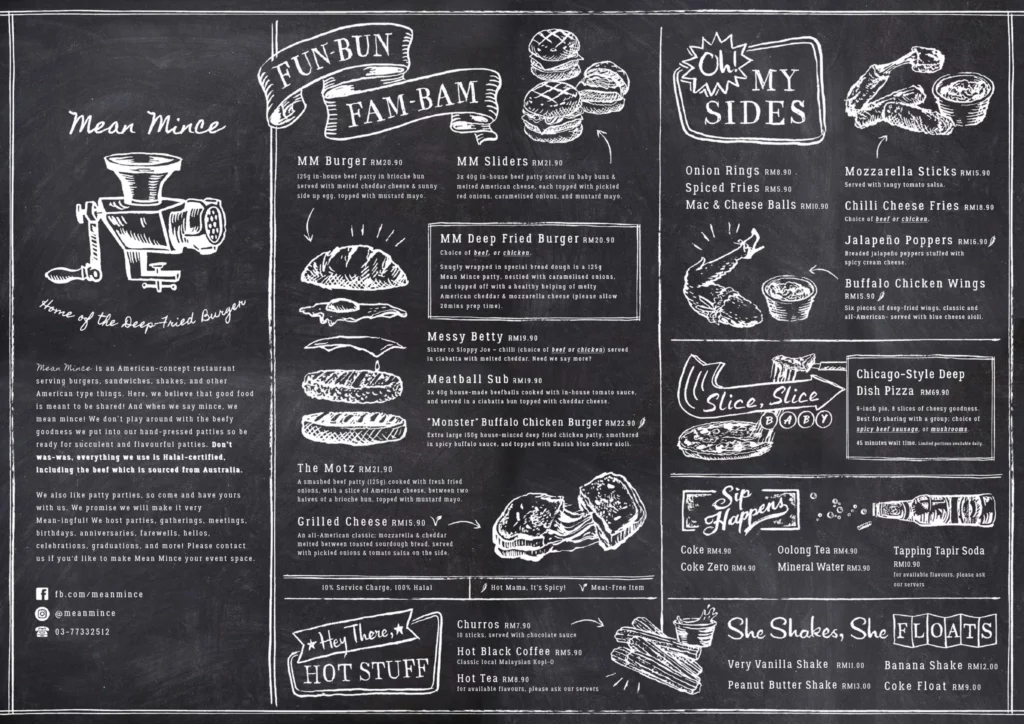 Mean Mince
Home of the Deep-Fried Burger
Mean Mince is an American-concept restaurant
serving burgers, sandwiches, shakes, and other
American type things. Here, we believe that good food
is meant to be shared! And when we say mince, we
mean mince! We don't play around with the beefy
goodness we put into our hand-pressed patties so be
ready for succulent and flavourful patties. Don't
was-was, everything we use is Halal-certified,
including the beef which is sourced from Australia.
We also like patty parties, so come and have yours
with us. We promise we will make it very
Mean-ingful! We host parties, gatherings, meetings,
birthdays, anniversaries, farewells, hellos,
celebrations, graduations, and more! Please contact
us if you'd like to make Mean Mince your event space.
fb.com/meanmince
@meanmince
03-77332512
FUN-BUN
FAM-BAM
MM Burger RM20.90
125g in-house beef patty in brioche bun
served with melted cheddar cheese & sunny
side up egg, topped with mustard mayo.
MM Sliders RM21.90
3x 40g in-house beef patty served in baby buns &
melted American cheese, each topped with pickled
red onions, caramelised onions, and mustard mayo.
MM Deep Fried Burger RM20.90
Choice of beef, or chicken.
Snugly wrapped in special bread dough is a 125g
Mean Mince patty, nestled with caramelised onions,
and topped off with a healthy helping of melty
American cheddar & mozzarella cheese (please allow
20mins prep time).
Messy Betty RM19.90
Sister to Sloppy Joe - chilli (choice of beef or chicken) served
in ciabatta with melted cheddar. Need we say more?
Meatball Sub RM19.90
3x 40g house-made beefballs cooked with in-house tomato sauce,
and served in a ciabatta bun topped with cheddar cheese.
"Monster" Buffalo Chicken Burger RM22.90
Extra large 150g house-minced deep fried chicken patty, smothered
in spicy buffalo sauce, and topped with Danish blue cheese aioli.
The Motz RM21.90
A smashed beef patty (125g) cooked with fresh fried
onions, with a slice of American cheese, between two
halves of a brioche bun, topped with mustard mayo.
Grilled Cheese RM15.90 V
An all-American classic; mozzarella & cheddar
melted between toasted sourdough bread, served
with pickled onions & tomato salsa on the side.
10% Service Charge, 100% Halal
Hot Mama, It's Spicy!
V Meat-Free Item
Hey There,
HOT STUFF
Churros RM7.90
10 sticks, served with chocolate sauce
Hot Black Coffee RM5.90
Classic local Malaysian Kopi-O
Hot Tea RM8.90
for available flavours, please ask our servers
Oh!
MY
SIDES
Onion Rings RM8.90
Spiced Fries RM5.90
Mac & Cheese Balls RM10.90
Mozzarella Sticks RM15.90
Served with tangy tomato salsa.
Chilli Cheese Fries RM18.90
Choice of beef or chicken.
Jalapeño Poppers RM16.90
Breaded jalapeño peppers stuffed with
spicy cream cheese.
Buffalo Chicken Wings
RM15.90
Six pieces of deep-fried wings, classic and
all-American- served with blue cheese aioli.
Slice, Slice
BABY
Chicago-Style Deep
Dish Pizza RM69.90
9-inch pie, 8 slices of cheesy goodness.
Best for sharing with a group; choice of
spicy beef sausage, or mushrooms.
45 minutes wait time. Limited portions available daily.
Sip
Happens
Coke RM4.90
Coke Zero RM4.90
Oolong Tea RM4.90
Mineral Water RM3.90
Tapping Tapir Soda
RM10.90
for available flavours, please ask
our servers
She Shakes, She FLOATS
Very Vanilla Shake RM11.00
Peanut Butter Shake RM13.00
Banana Shake RM12.00
Coke Float RM9.00